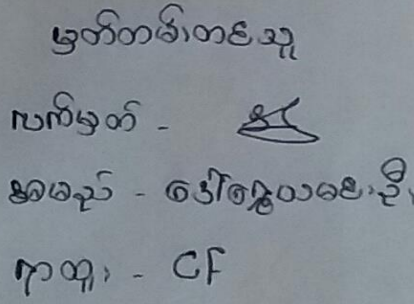 မှတ်တမ်းတင်သူ
လက်မှတ် -
အမည် - ဒေါ်ရွှေယမင်းဦး
ရာထူး - CF